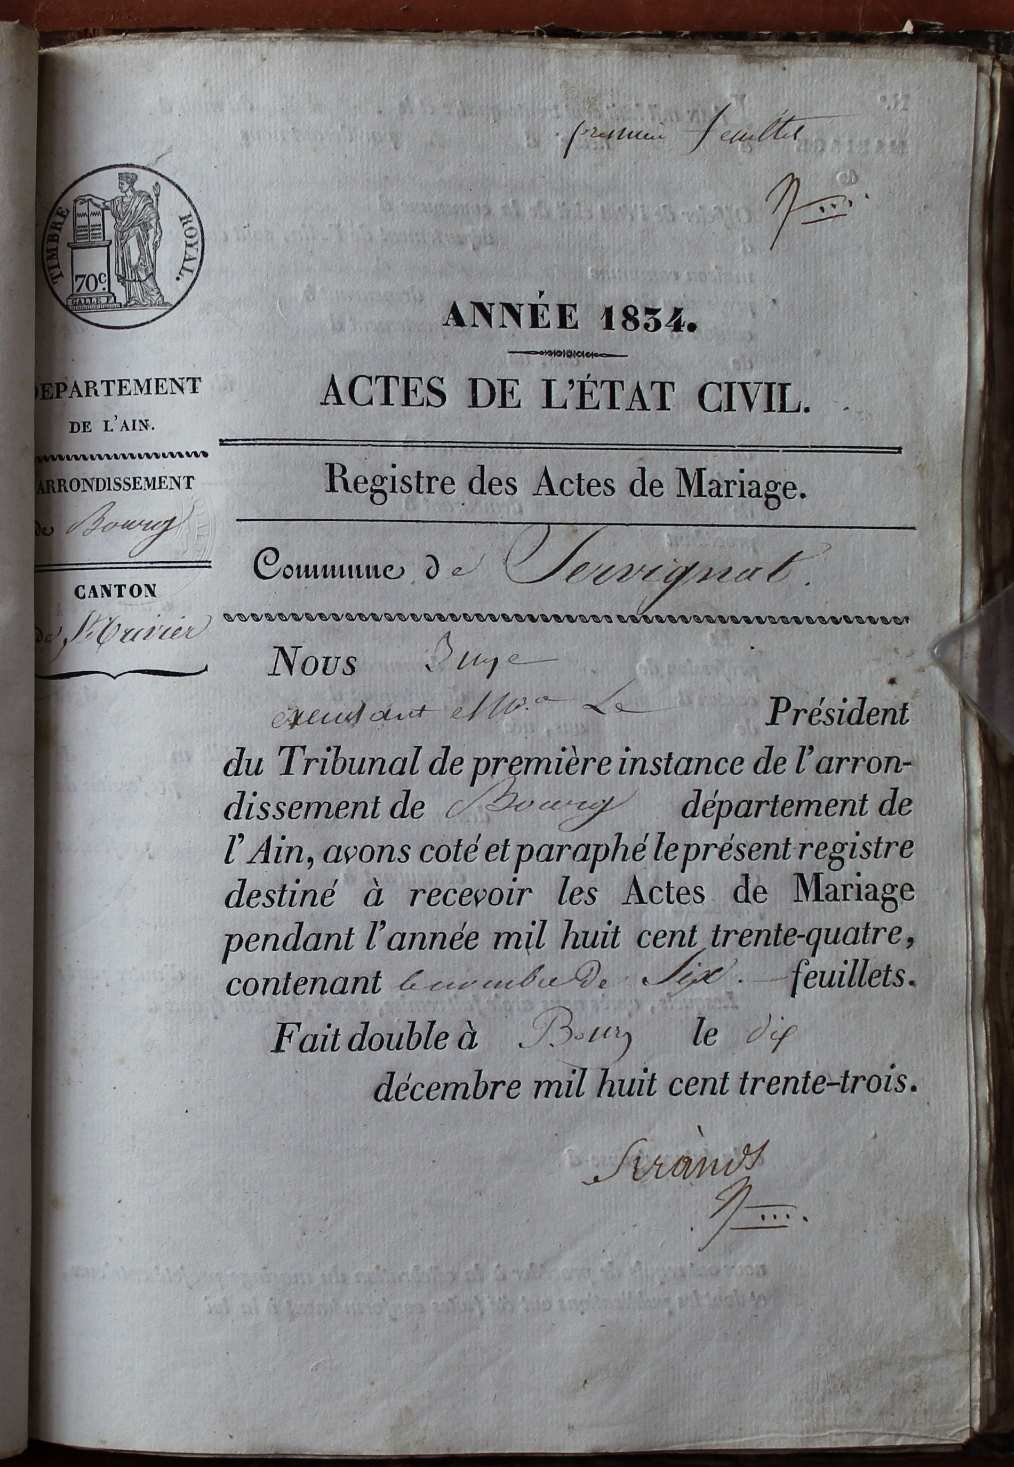 premier feuillet
TIMBRE ROYAL.
70c.
ANNÉE 1834.
ACTES DE L'ÉTAT CIVIL.
DEPARTEMENT
DE L'AIN.
ARRONDISSEMENT
de Bourg
CANTON
de St Trivier
Registre des Actes de Mariage.
Commune de Servignat.
Nous Juge
Le Président
du Tribunal de première instance de l'arron-
dissement de Bourg département de
l'Ain, avons coté et paraphé le présent registre
destiné à recevoir les Actes de Mariage
pendant l'année mil huit cent trente-quatre,
contenant le nombre de Six feuillets.
Fait double à Bourg le dix
décembre mil huit cent trente-trois.